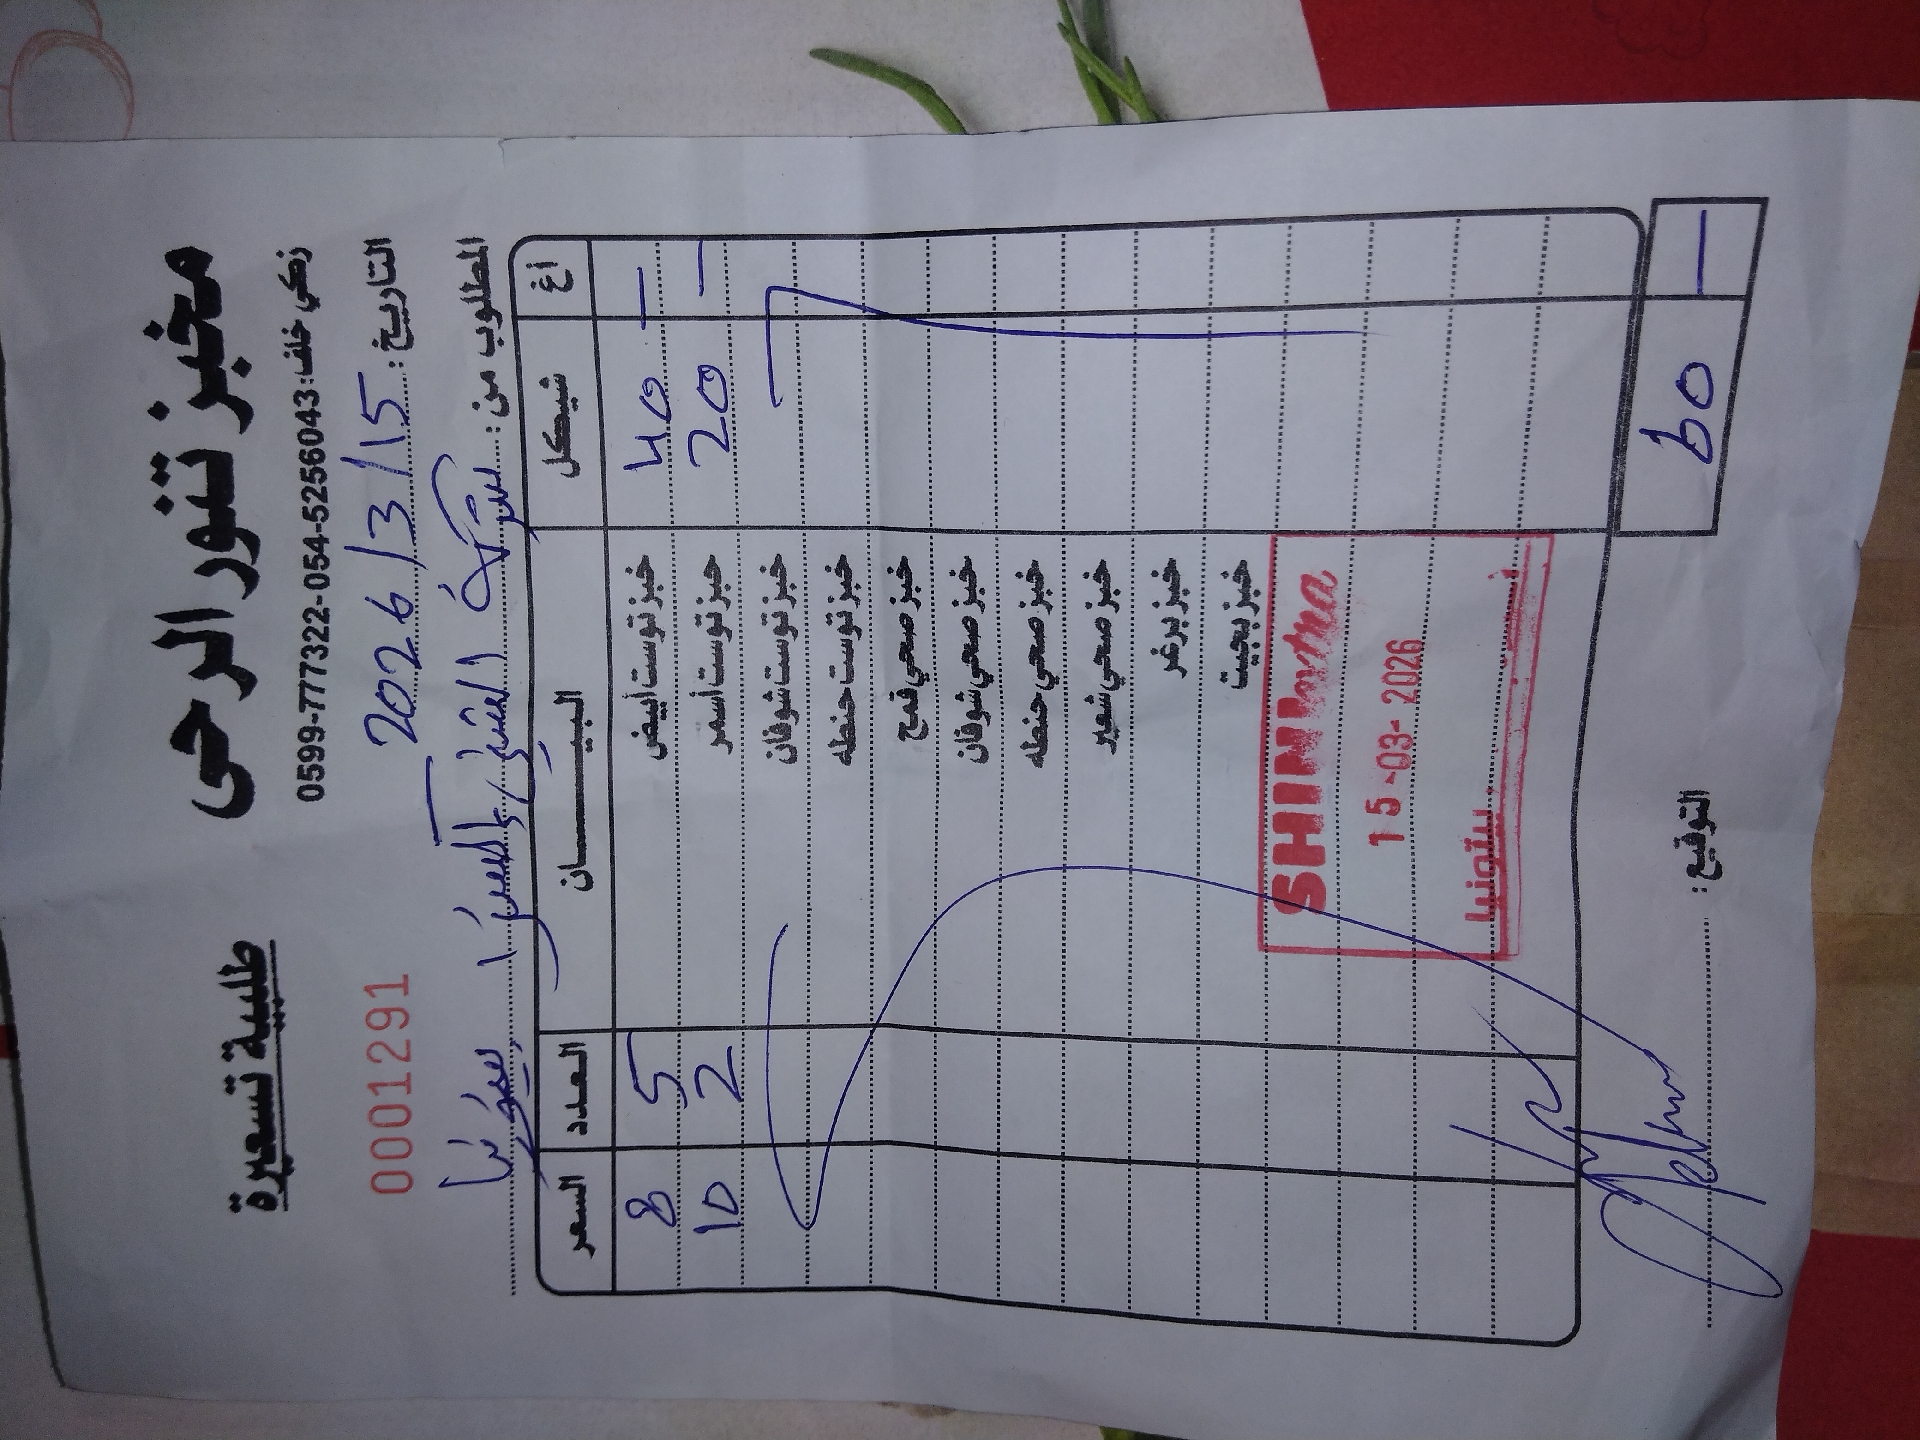 مخبز تنور الرحى
زكي خلف: 0599-777322-054-5256043
طلبية تسعيرة
التاريخ: 2026/3/15
00001291
المطلوب من: شركة
أغ شيكل البيـــــان العدد السعر
— 40 خبز توست أبيض 5 8
— 20 خبز توست أسمر 2 10
خبز توست شوفان
خبز توست حنطه
خبز صحي قمح
خبز صحي شوفان
خبز صحي حنطه
خبز صحي شعير
خبز برغر
خبز بجيت
SHINI extra
15-03-2026
بيتونيا
— 60
التوقيع: